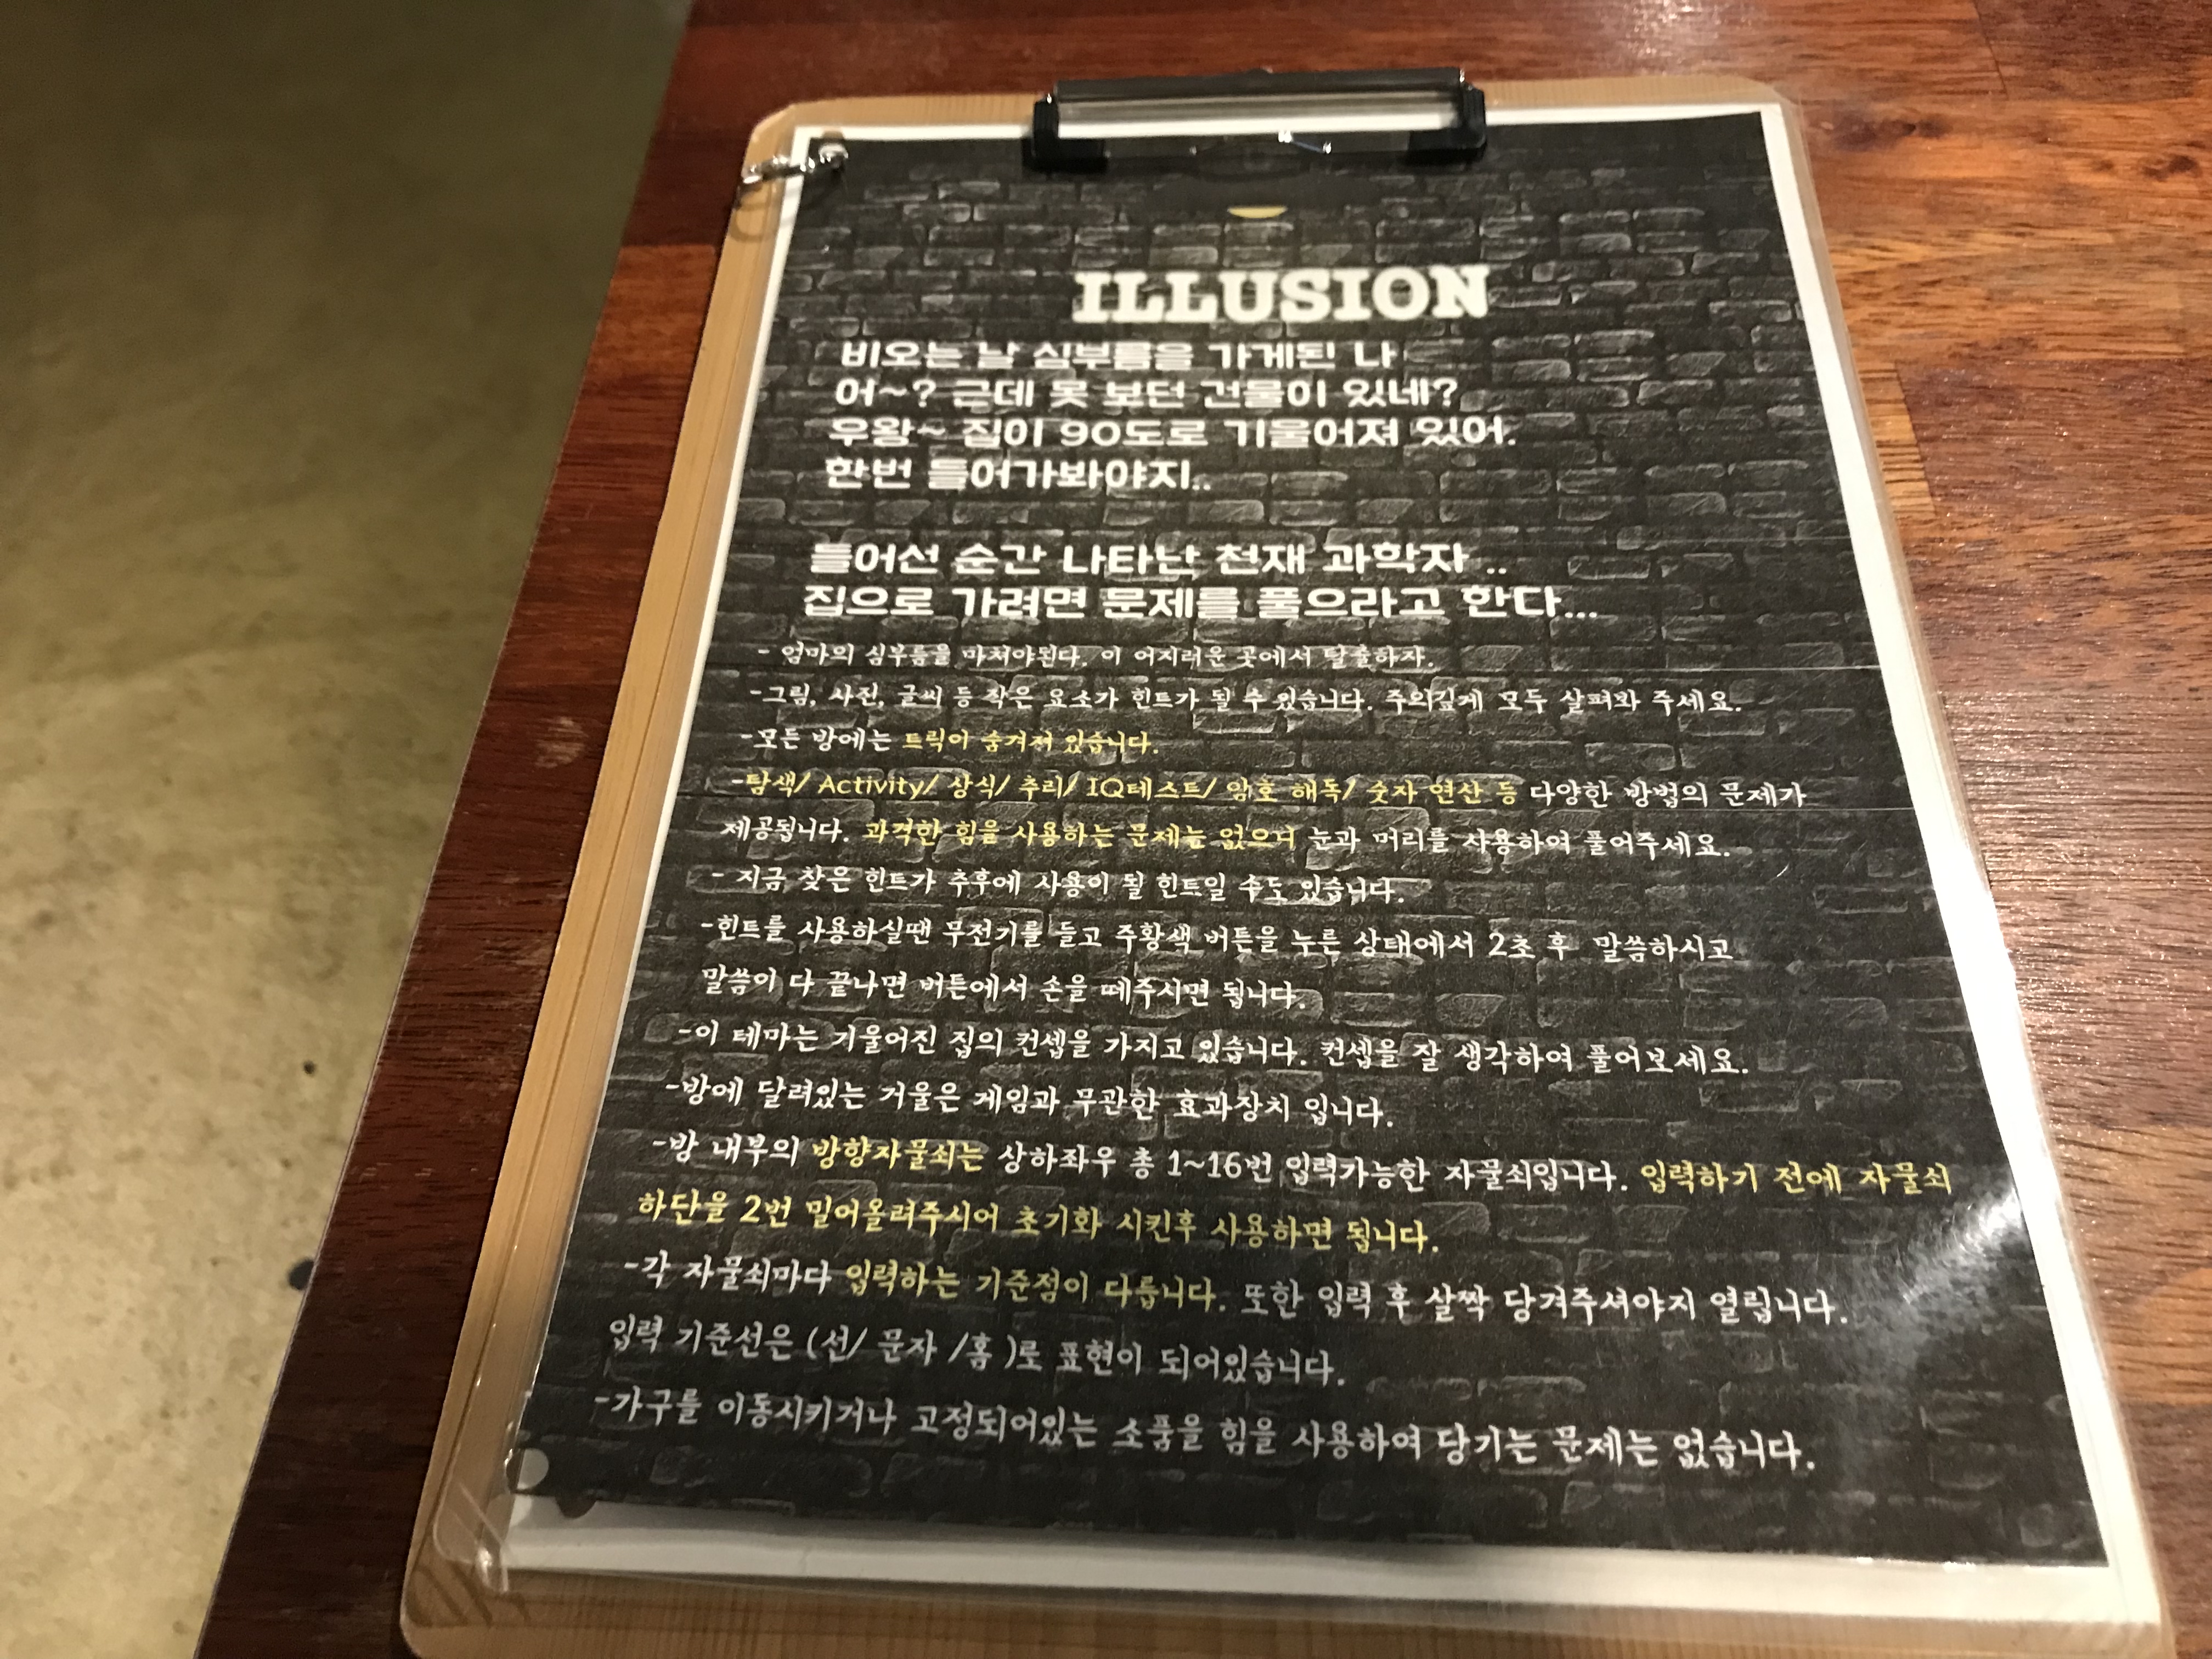 ILLUSION
비오는 날 심부름을 가게된 나
어~? 근데 못 보던 건물이 있네?
우왕~ 집이 90도로 기울어져 있어.
한번 들어가봐야지..
들어선 순간 나타난 천재 과학자 ..
집으로 가려면 문제를 풀으라고 한다...
- 엄마의 심부름을 마쳐야된다. 이 어지러운 곳에서 탈출하자.
-그림, 사진, 글씨 등 작은 요소가 힌트가 될 수 있습니다. 주의깊게 모두 살펴봐 주세요.
-모든 방에는 트릭이 숨겨져 있습니다.
-탐색/ Activity/ 상식/ 추리/ IQ테스트/ 암호 해독/ 숫자 연산 등 다양한 방법의 문제가
제공됩니다. 과격한 힘을 사용하는 문제는 없으니 눈과 머리를 사용하여 풀어주세요.
- 지금 찾은 힌트가 추후에 사용이 될 힌트일 수도 있습니다.
-힌트를 사용하실땐 무전기를 들고 주황색 버튼을 누른 상태에서 2초 후 말씀하시고
말씀이 다 끝나면 버튼에서 손을 떼주시면 됩니다.
-이 테마는 기울어진 집의 컨셉을 가지고 있습니다. 컨셉을 잘 생각하여 풀어보세요.
-방에 달려있는 거울은 게임과 무관한 효과장치 입니다.
-방 내부의 방향자물쇠는 상하좌우 총 1~16번 입력가능한 자물쇠입니다. 입력하기 전에 자물쇠
하단을 2번 밀어올려주시어 초기화 시킨후 사용하면 됩니다.
-각 자물쇠마다 입력하는 기준점이 다릅니다. 또한 입력 후 살짝 당겨주셔야지 열립니다.
입력 기준선은 (선/ 문자 /홈 )로 표현이 되어있습니다.
-가구를 이동시키거나 고정되어있는 소품을 힘을 사용하여 당기는 문제는 없습니다.